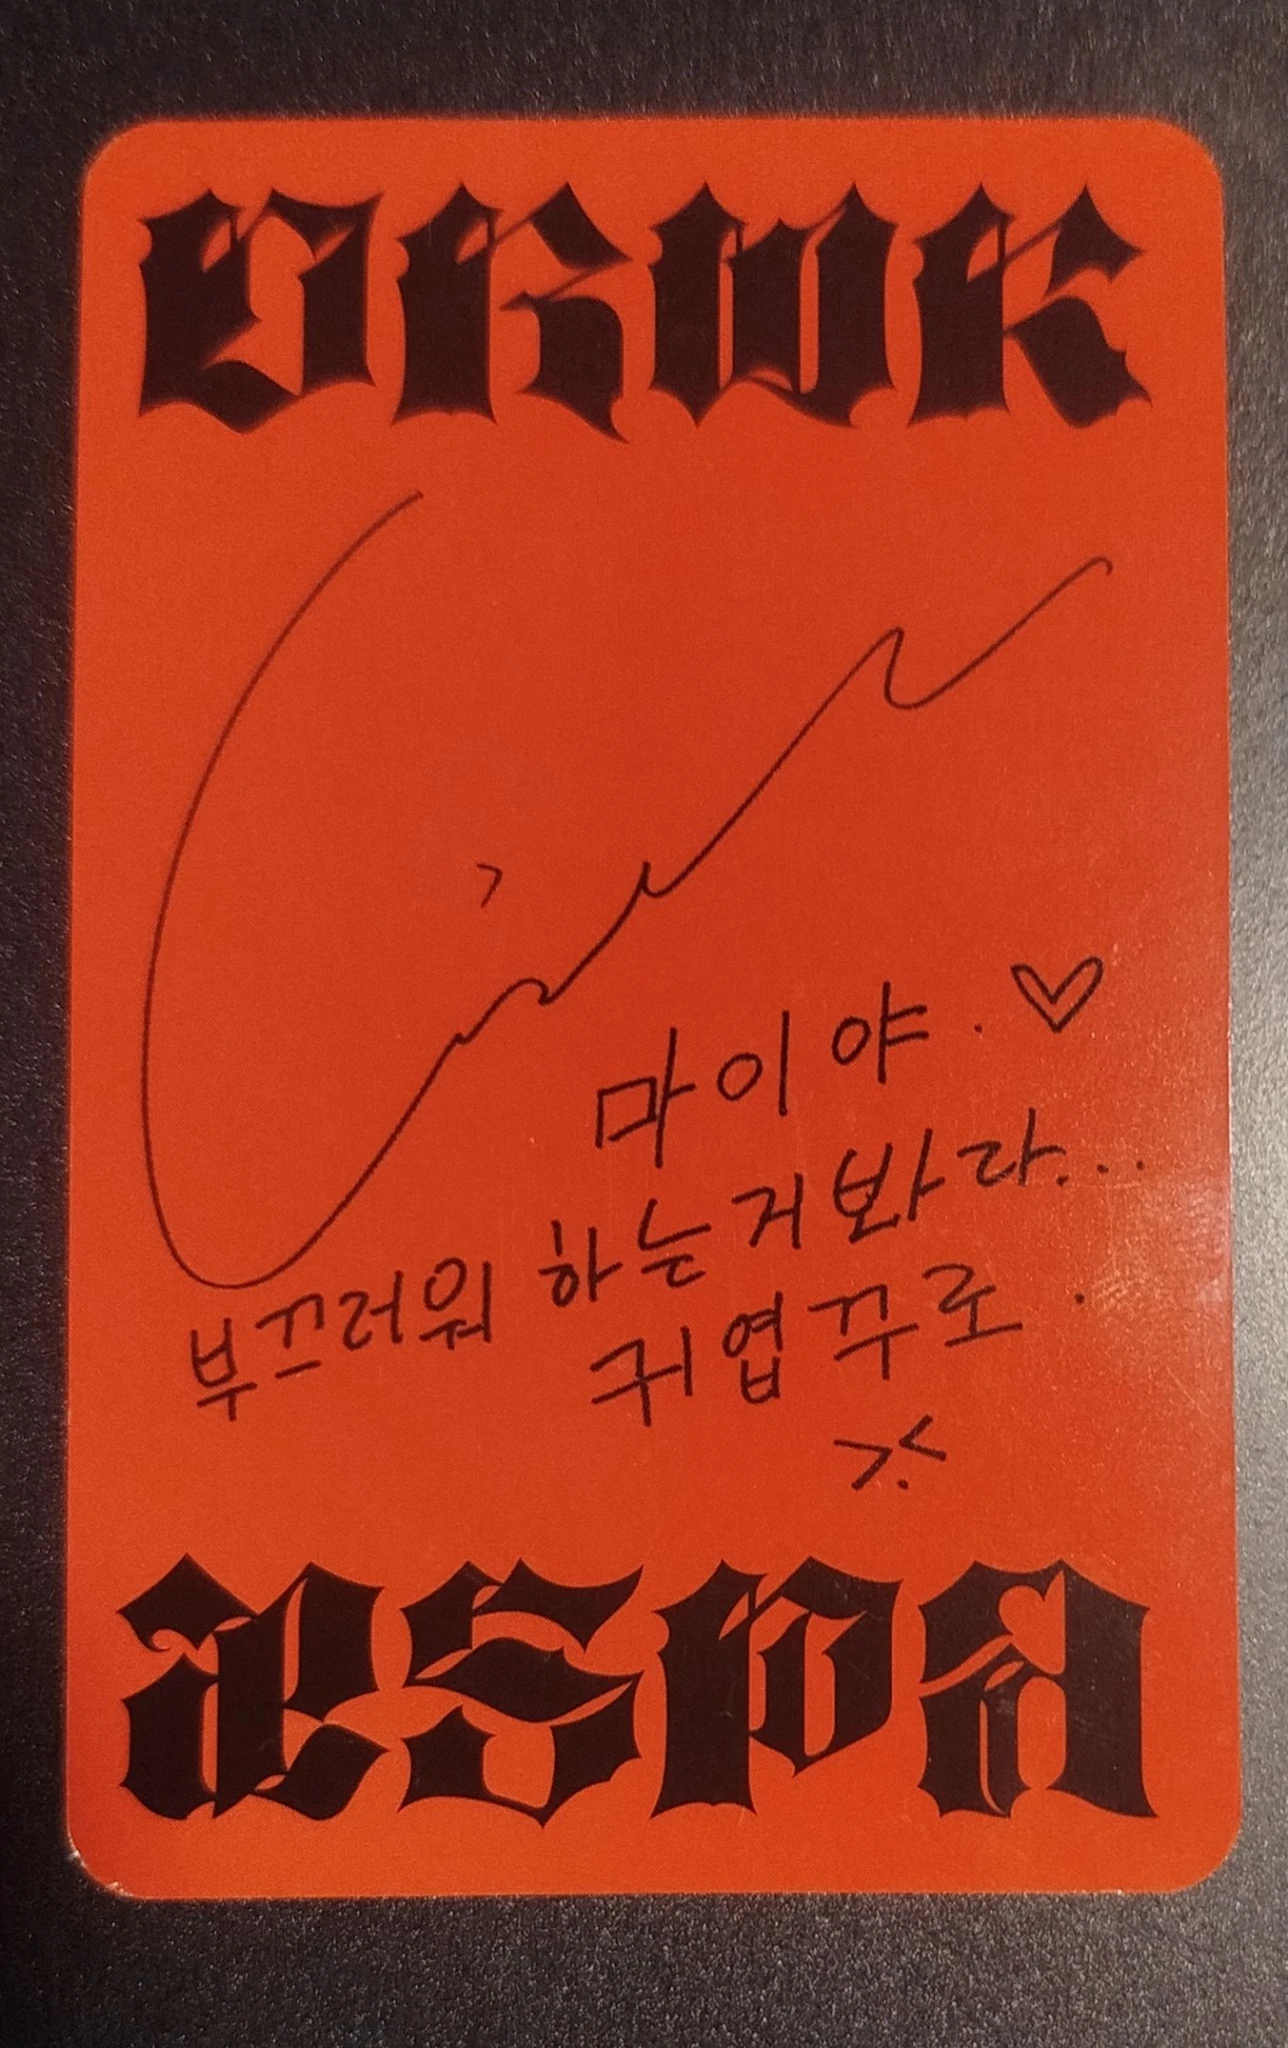 DRWK
마이야. ♡
부끄러워 하는거봐라...
귀엽꾸로.
>.<
aespa